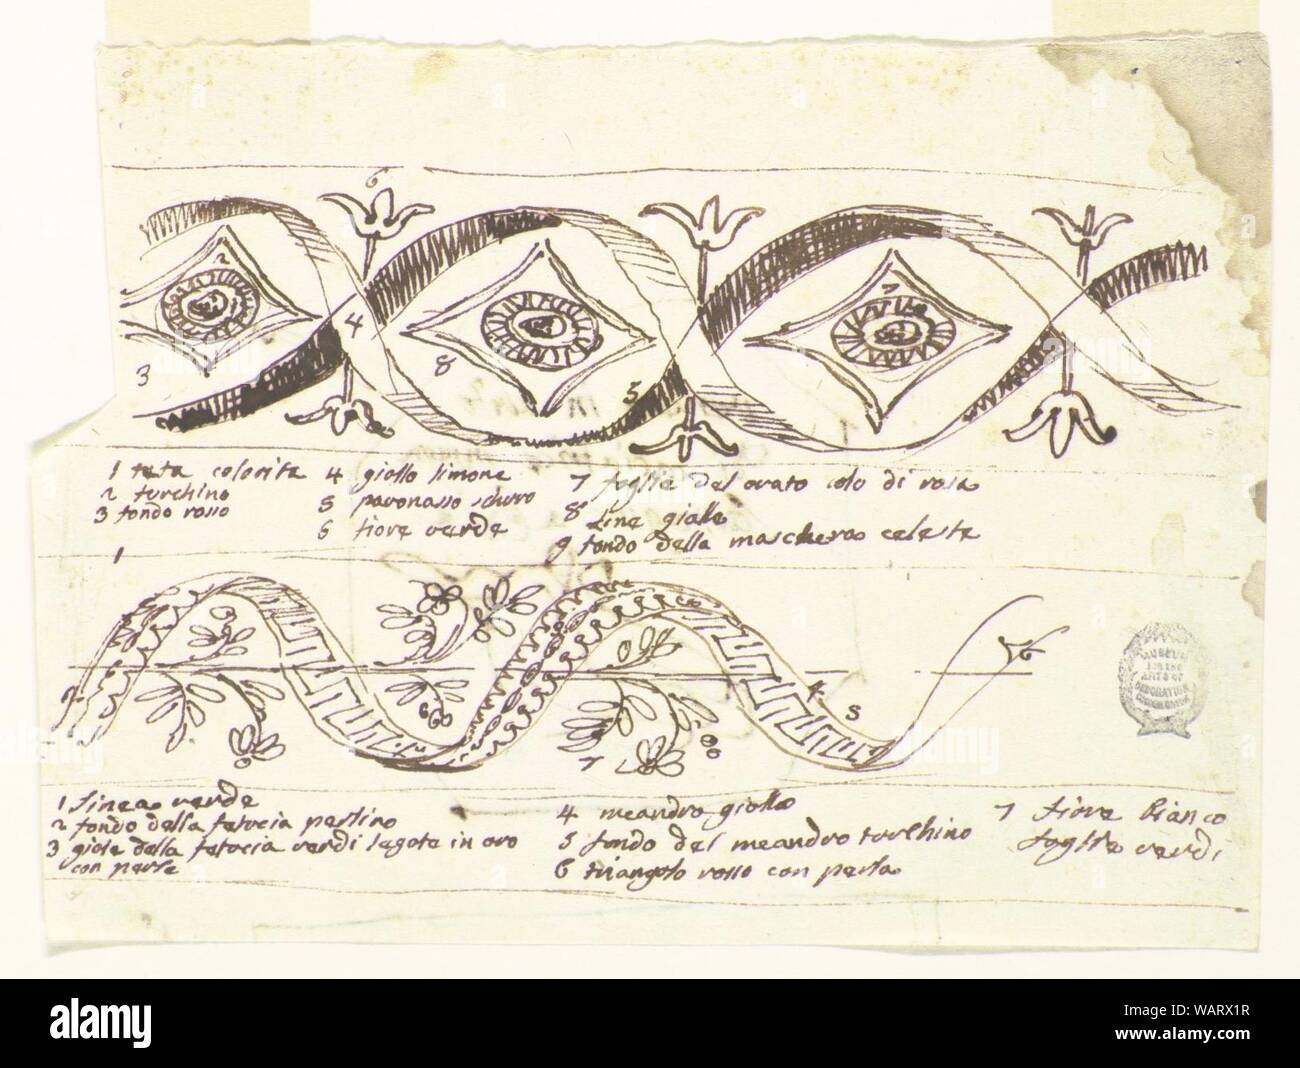 6
2
7
4
3
8
5
1 testa colorita
2 turchino
3 fondo rosso
4 giallo limone
5 pavonasso schuro
6 fiore verde
7 foglie del ovato colo di rosa
8 line gialle
9 fondo della maschera celeste
1
2
4
5
6
7
1 linea verde
2 fondo della fascia perlino
3 gioie della verdi legate in oro
con perle
4 meandro giallo
5 fondo del meandro turchino
6 triangolo rosso con perla
7 fiore bianco
foglie verdi
MUSEUM
FOR THE
ARTS OF
DECORATION
alamy
Image ID: WARX1R
www.alamy.com